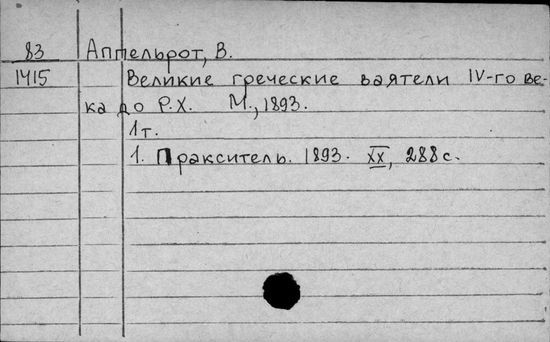 83 Аппельрот, В.
1415 Великие греческие ваятели IV-го ве-
ка до Р.Х. М., 1893.
1т.
1. Пракситель. 1893. XX, 288 с.